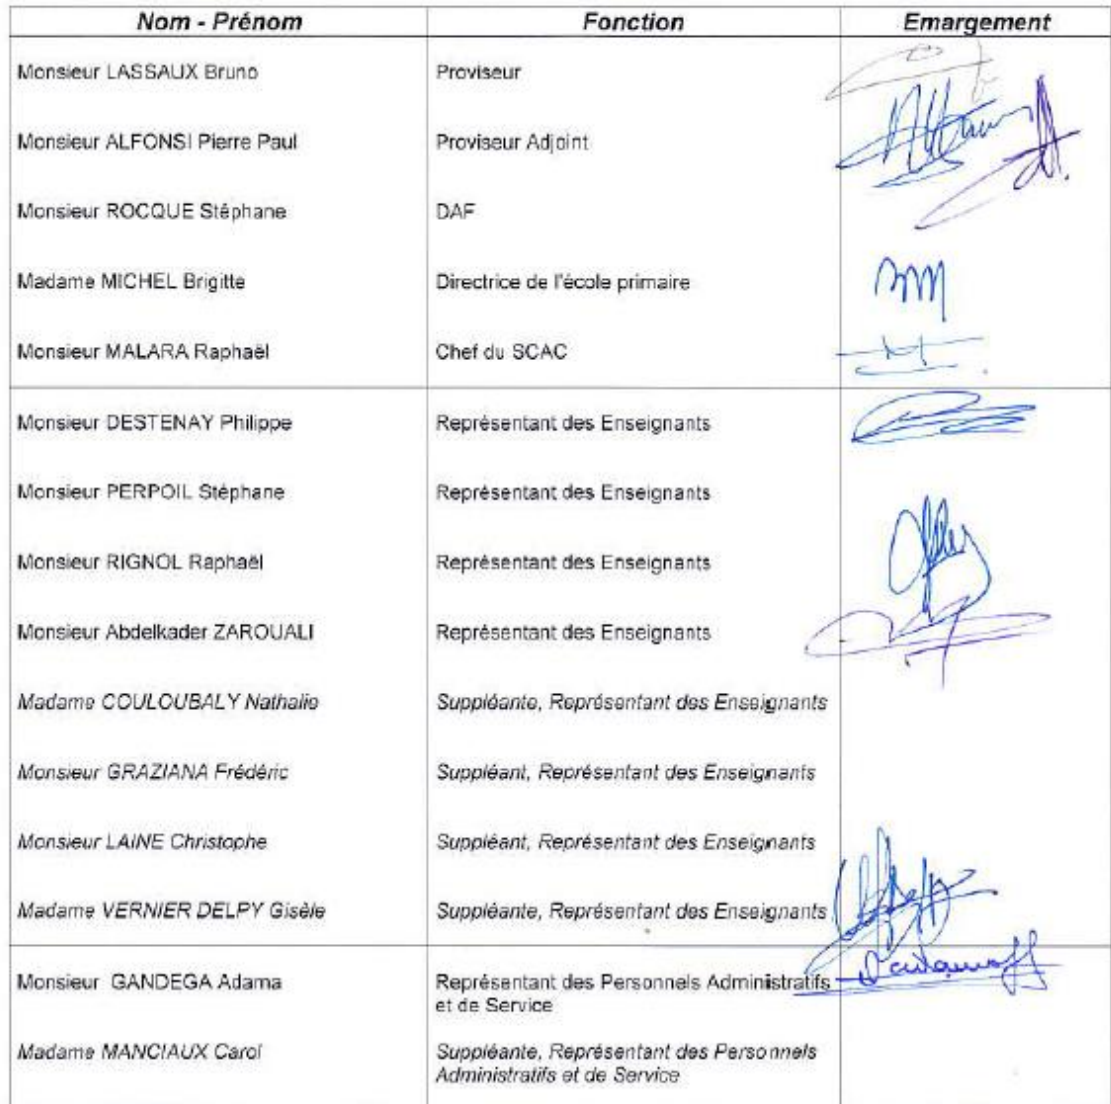 Nom - Prénom Fonction Emargement
Monsieur LASSAUX Bruno Proviseur
Monsieur ALFONSI Pierre Paul Proviseur Adjoint
Monsieur ROCQUE Stéphane DAF
Madame MICHEL Brigitte Directrice de l'école primaire
Monsieur MALARA Raphaël Chef du SCAC
Monsieur DESTENAY Philippe Représentant des Enseignants
Monsieur PERPOIL Stéphane Représentant des Enseignants
Monsieur RIGNOL Raphaël Représentant des Enseignants
Monsieur Abdelkader ZAROUALI Représentant des Enseignants
Madame COULOUBALY Nathalie Suppléante, Représentant des Enseignants
Monsieur GRAZIANA Frédéric Suppléant, Représentant des Enseignants
Monsieur LAINE Christophe Suppléant, Représentant des Enseignants
Madame VERNIER DELPY Gisèle Suppléante, Représentant des Enseignants
Monsieur GANDEGA Adama Représentant des Personnels Administratifs
et de Service
Madame MANCIAUX Carol Suppléante, Représentant des Personnels
Administratifs et de Service